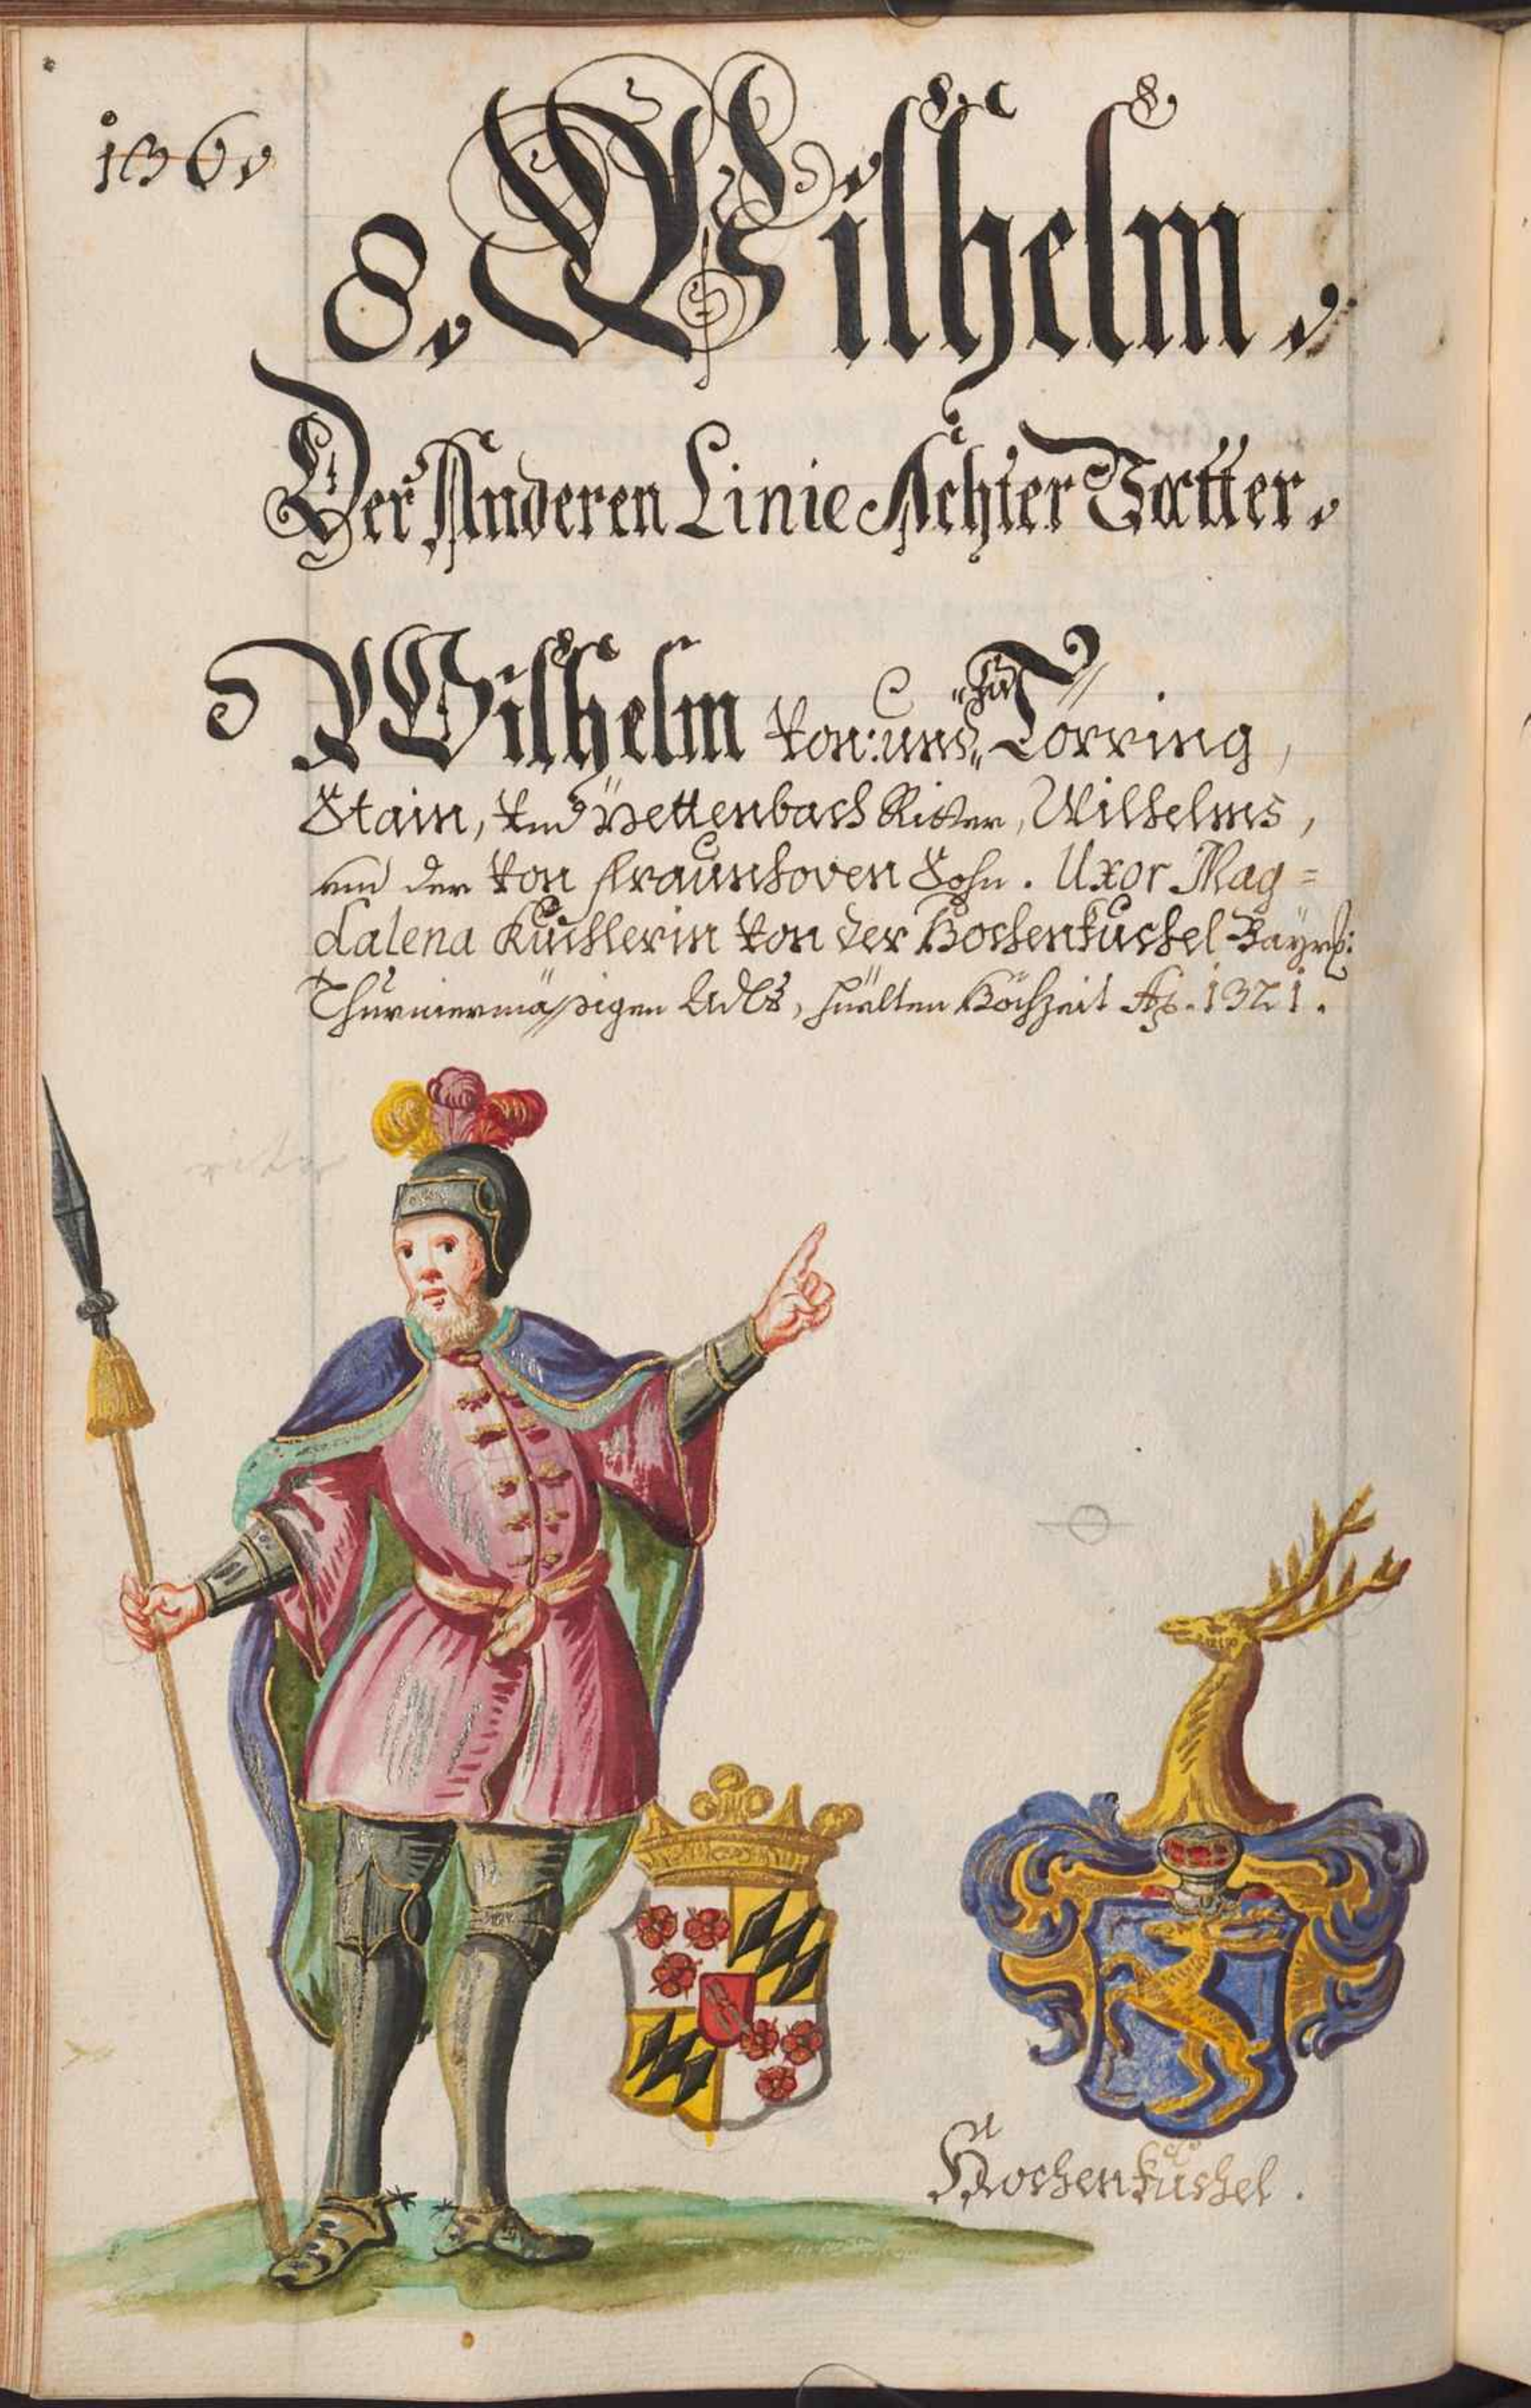 136.
8. Wilhelm.
Der Anderen Linie Achter Vatter.
Wilhelm von: und zu Törring,
Stain, vnd Pettenbach Ritter, Wilhelms,
und der von Fraunhoven Sohn. Uxor Mag=
dalena Kuchlerin von der Hochenkuchel Bayrß:
Thurniermäßigen Adls, hielten Hochzeit Aō. 1321.
Hochenkuchel.